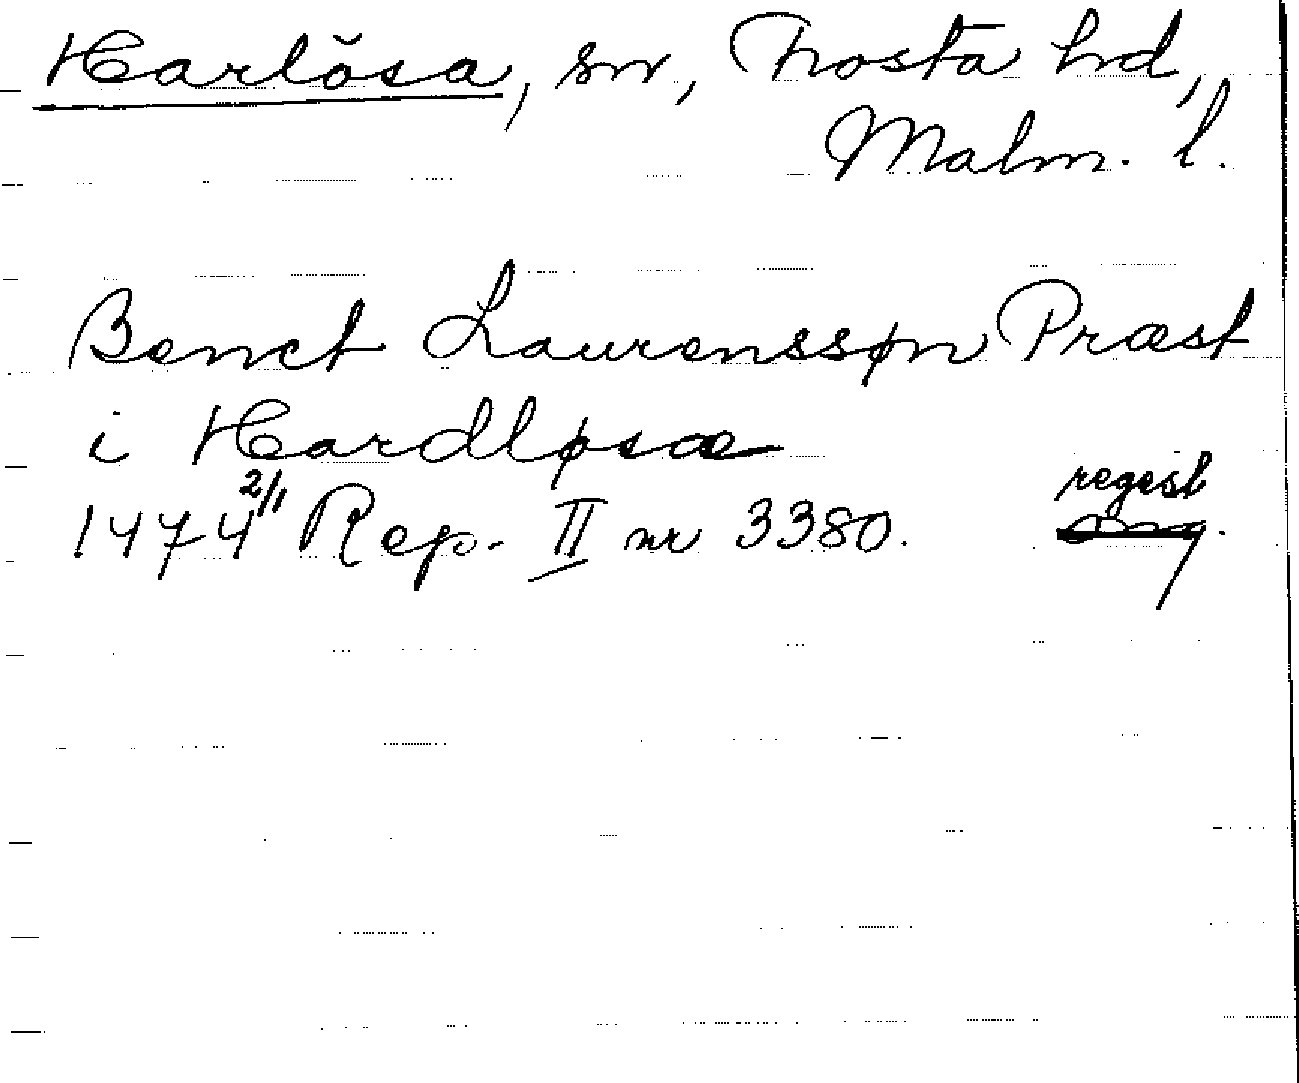 Harlösa, sn, Frosta hd,
Malm. l.
Benct Laurenssøn Præst
i Hardløsæ
1474 2/1 Rep. II nr 3380. regest